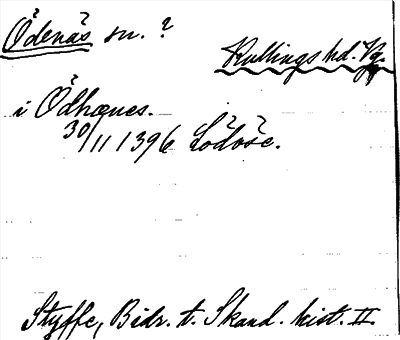 Ödenäs sn. ?
Kullings hd. Vg.
i Ödhænes.
30/11 1396 Lödöse.
Styffe, Bidr. t. Skand. hist. II.